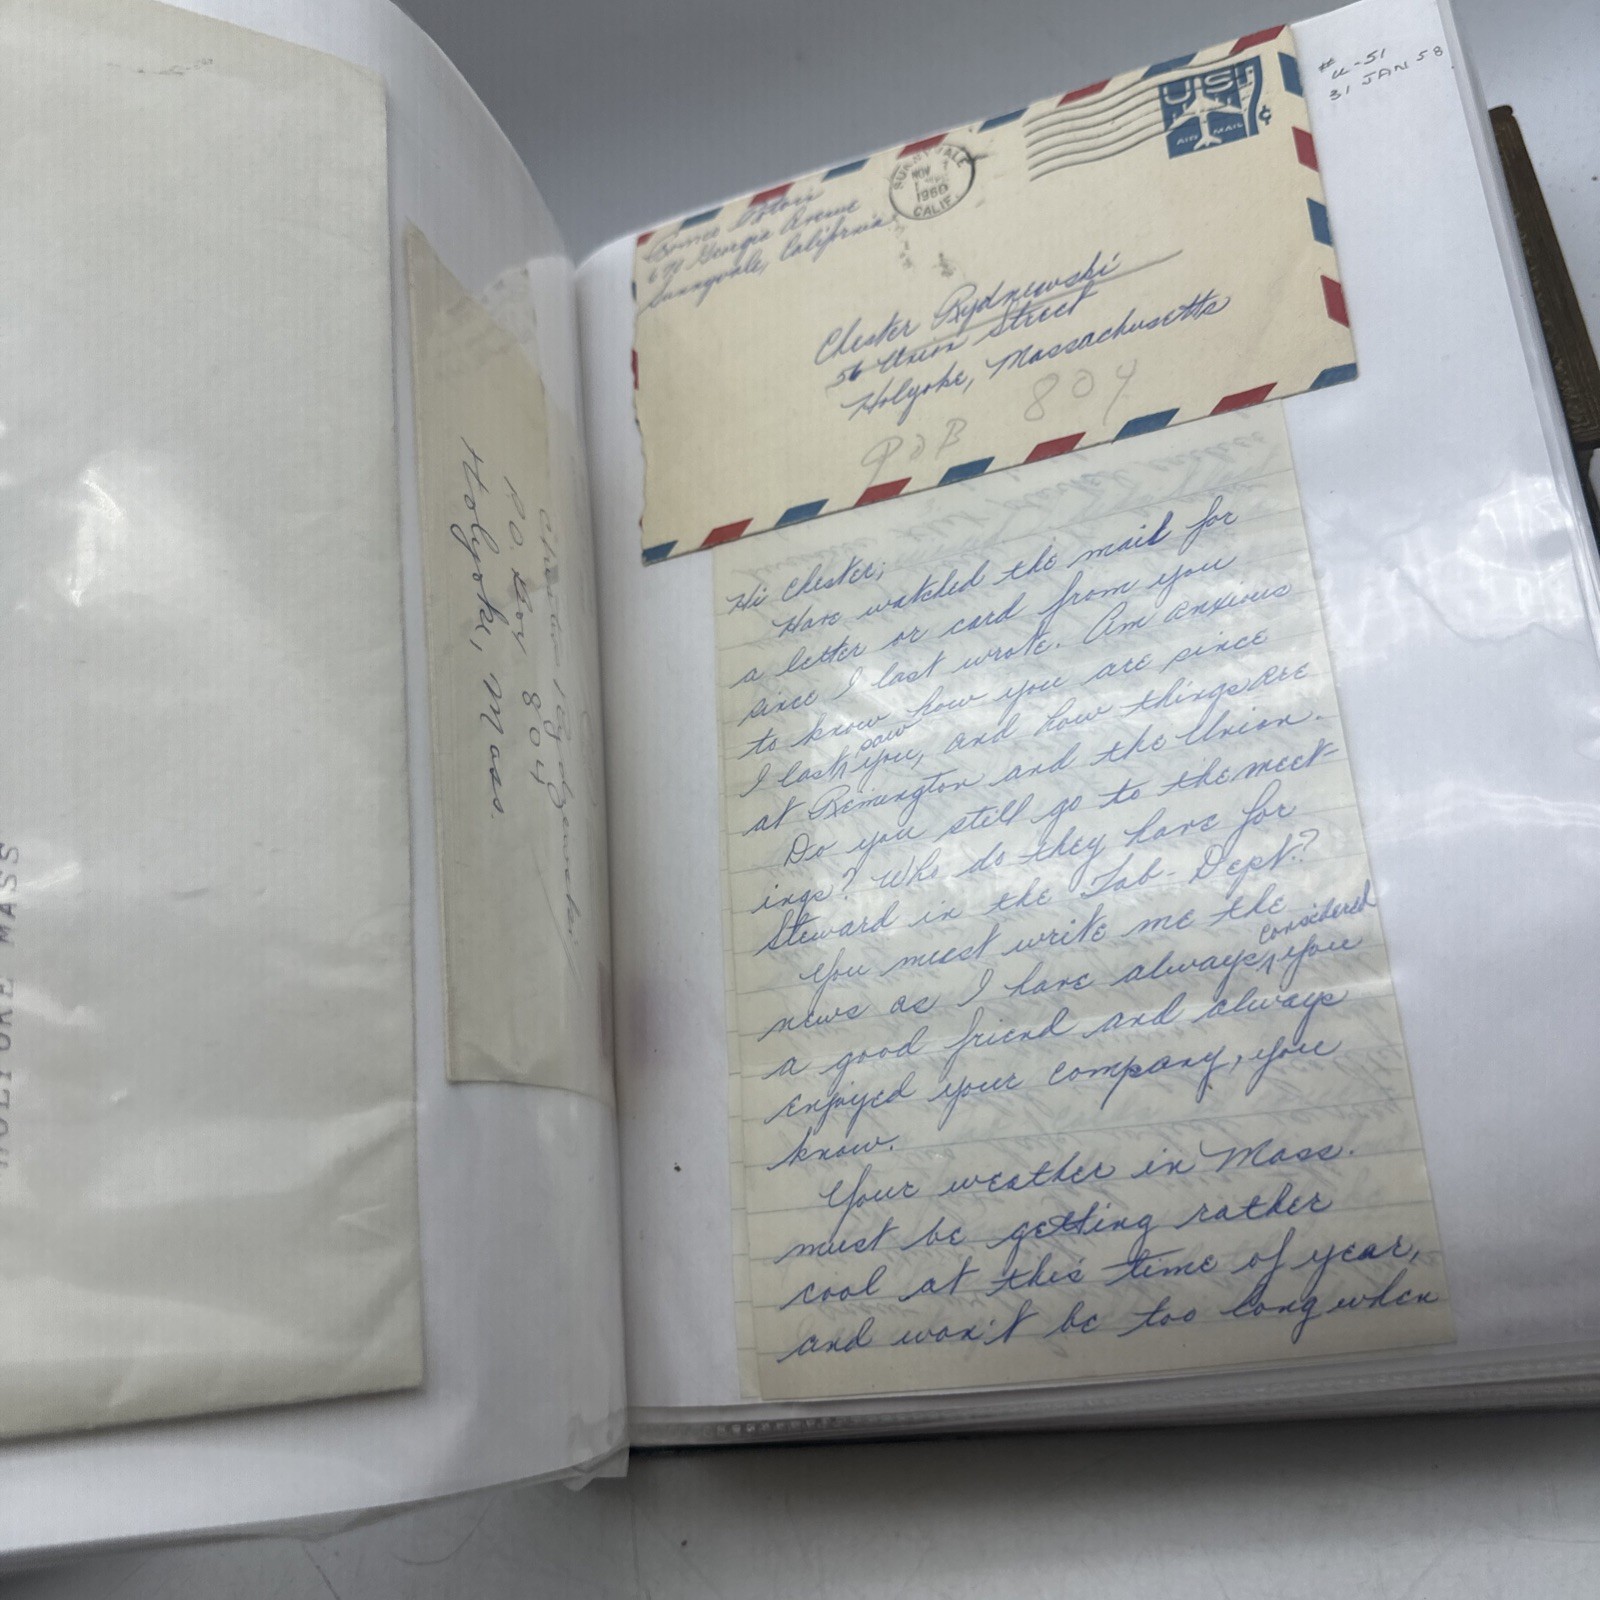 HOLYOKE MASS
Chester
P.O. Box 804
Holyoke, Mass.
# U-51
31 JAN 58
US
7¢
AIR MAIL
SUNNYVALE
NOV 7
1960
CALIF.
Georgia Avenue
Sunnyvale, California
Chester Rydniewski
56 Union Street
Holyoke, Massachusetts
POB 804
Hi Chester;
Have watched the mail for
a letter or card from you
since I last wrote. Am anxious
to know how you are since
I last saw you, and how things are
at Remington and the Union.
Do you still go to the meet-
ings? Who do they have for
Steward in the Tab-Dept.?
You must write me the
news as I have always considered you
a good friend and always
enjoyed your company, you
know.
Your weather in Mass.
must be getting rather
cool at this time of year,
and won't be too long when